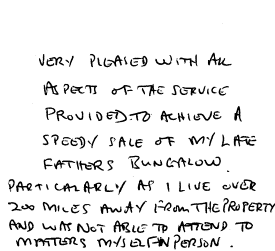 VERY PLEASED WITH ALL
ASPECTS OF THE SERVICE
PROVIDED TO ACHIEVE A
SPEEDY SALE OF MY LATE
FATHERS BUNGALOW.
PARTICALARLY AS I LIVE OVER
200 MILES AWAY FROM THE PROPERTY
AND WAS NOT ABLE TO ATTEND TO
MATTERS MYSELF IN PERSON.